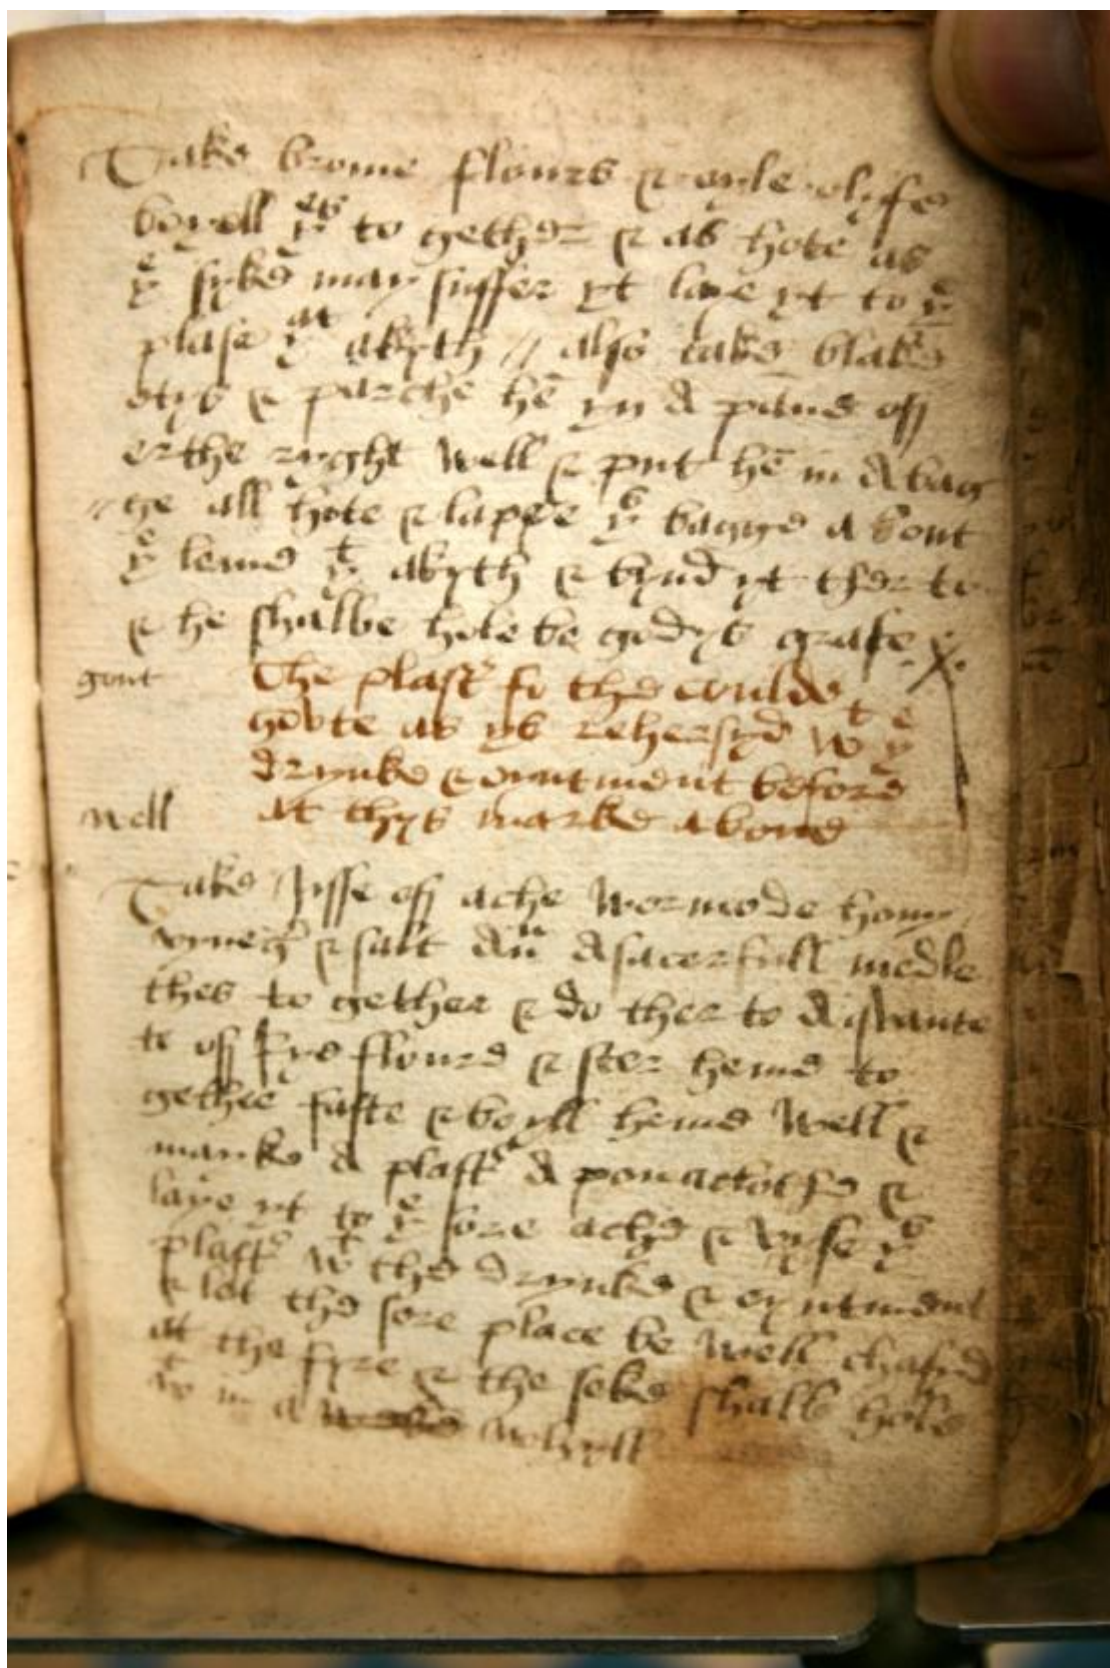 Take brome flours & oyle olyfe
boyell yem to gether & as hote as
ye syke may suffer yt laye yt to ye
plase yat akyth // also take blake
otys & parche hē yn a panne off
erthe ryght well & put hē in a bag
ge all hote & lappe ys bagge a bout
ye leme yt akyth & bynd yt ther to
& he shalbe hole be godys grase .x.
gout The plastr for the coulde
govte as ys rehersyd wt ye
drynke & oyntment before
well at thys marke above
Take Jusse off ache wormode hony
vynegr & salt an a sacerfull medle
thes to gether & do ther to a quante
te off Rye floure & ster heme to
gether faste & boyll heme well &
make a plastr &
laye yt to ye sore ache & vyse ys
plastr wt the drynke & oyntment
& let the sore place be well chafyd
at the fyre & the seke shall be hole
in a whyll